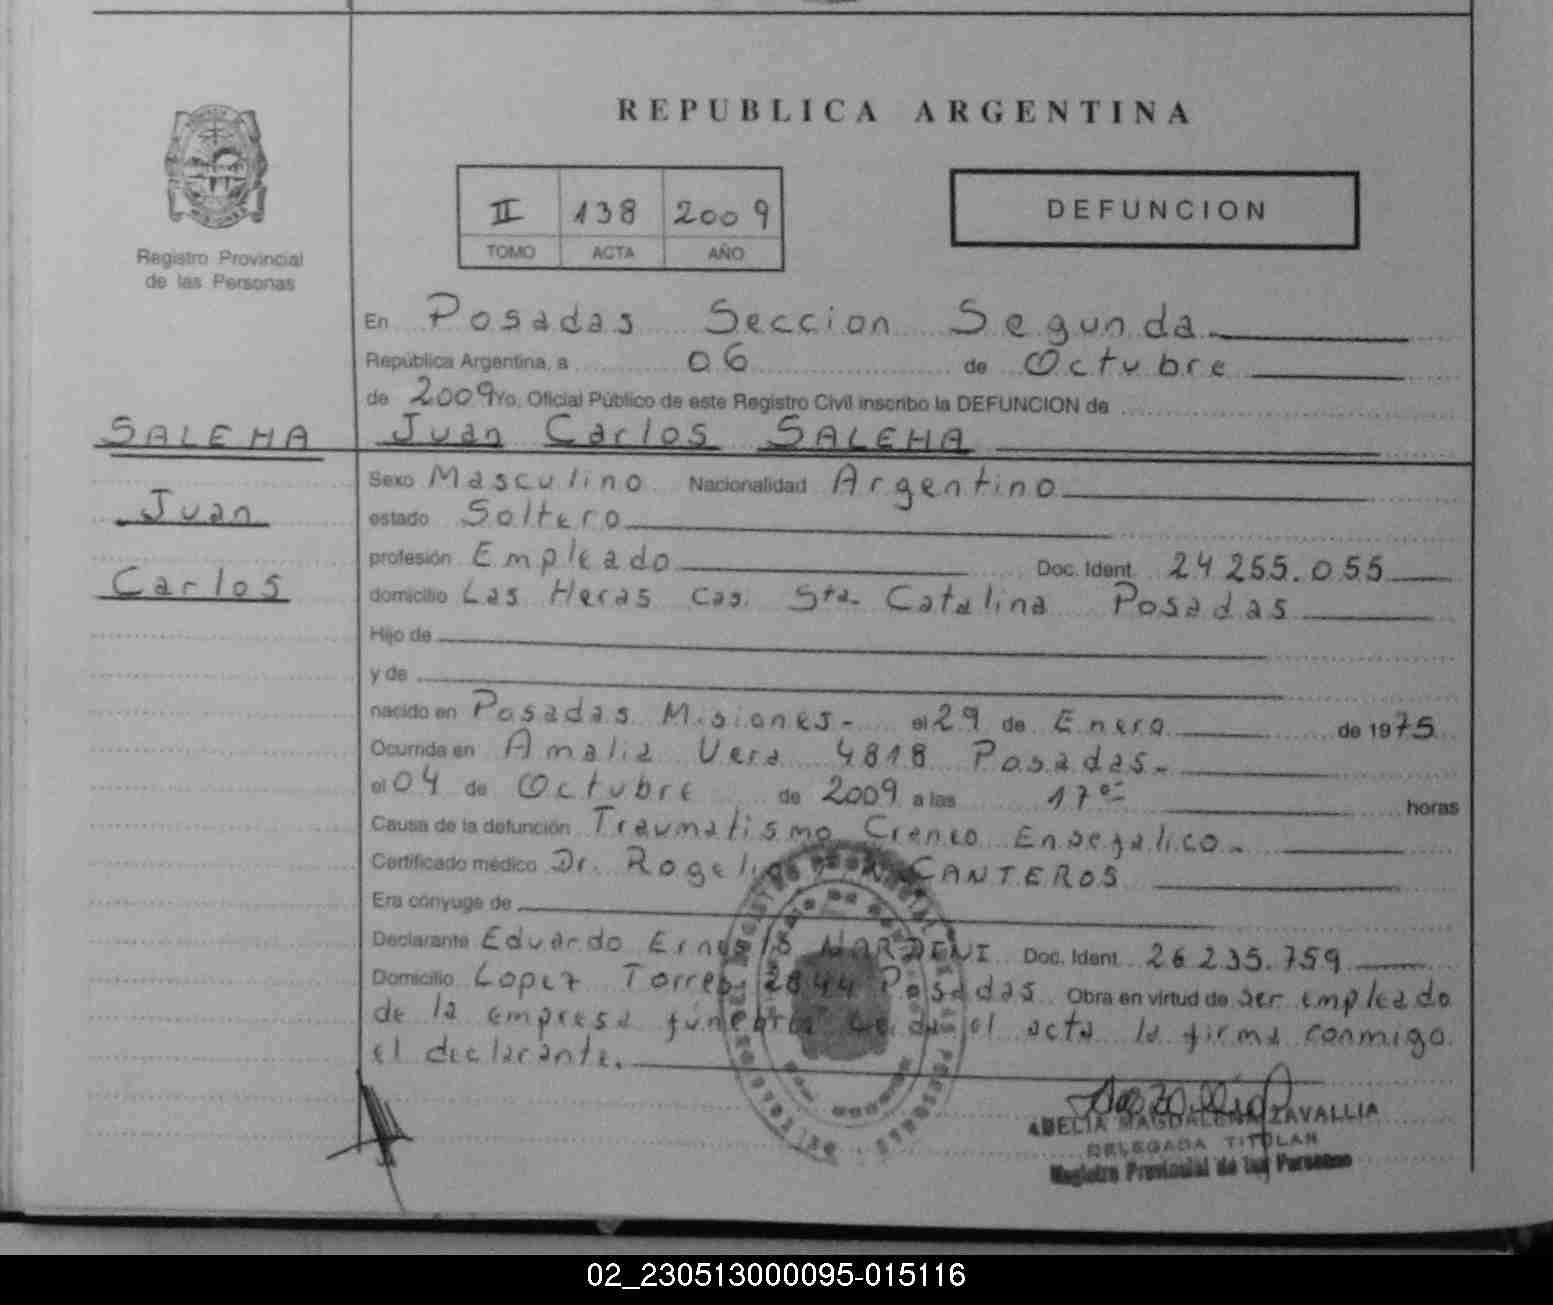 REPUBLICA ARGENTINA
II 138 2009
TOMO ACTA AÑO
DEFUNCION
Registro Provincial
de las Personas
En Posadas Seccion Segunda
República Argentina, a 06 de Octubre
de 2009 Yo, Oficial Público de este Registro Civil inscribo la DEFUNCION de
SALEHA Juan Carlos SALEHA
Juan
Carlos
Sexo Masculino Nacionalidad Argentino
estado Soltero
profesión Empleado Doc. Ident. 24 255.055
domicilio Las Heras Cas. Sta. Catalina Posadas
Hijo de
y de
nacido en Posadas Misiones- el 29 de Enero de 1975
Ocurrida en Amalia Vera 4818 Posadas-
el 04 de Octubre de 2009 a las 17 horas
Causa de la defunción Traumatismo Craneo
Certificado médico Dr. CANTEROS
Era cónyuge de
Declarante Eduardo Ernesto NARDENI Doc. Ident. 26 235.759
Domicilio Lopez Torres 2844 Posadas Obra en virtud de ser empleado
de la empresa fúnebre el acta la firma conmigo
el declarante.
ABELIA MAGDALENA ZAVALLIA
DELEGADA TITULAR
Registro Provincial de las Personas
02_230513000095-015116